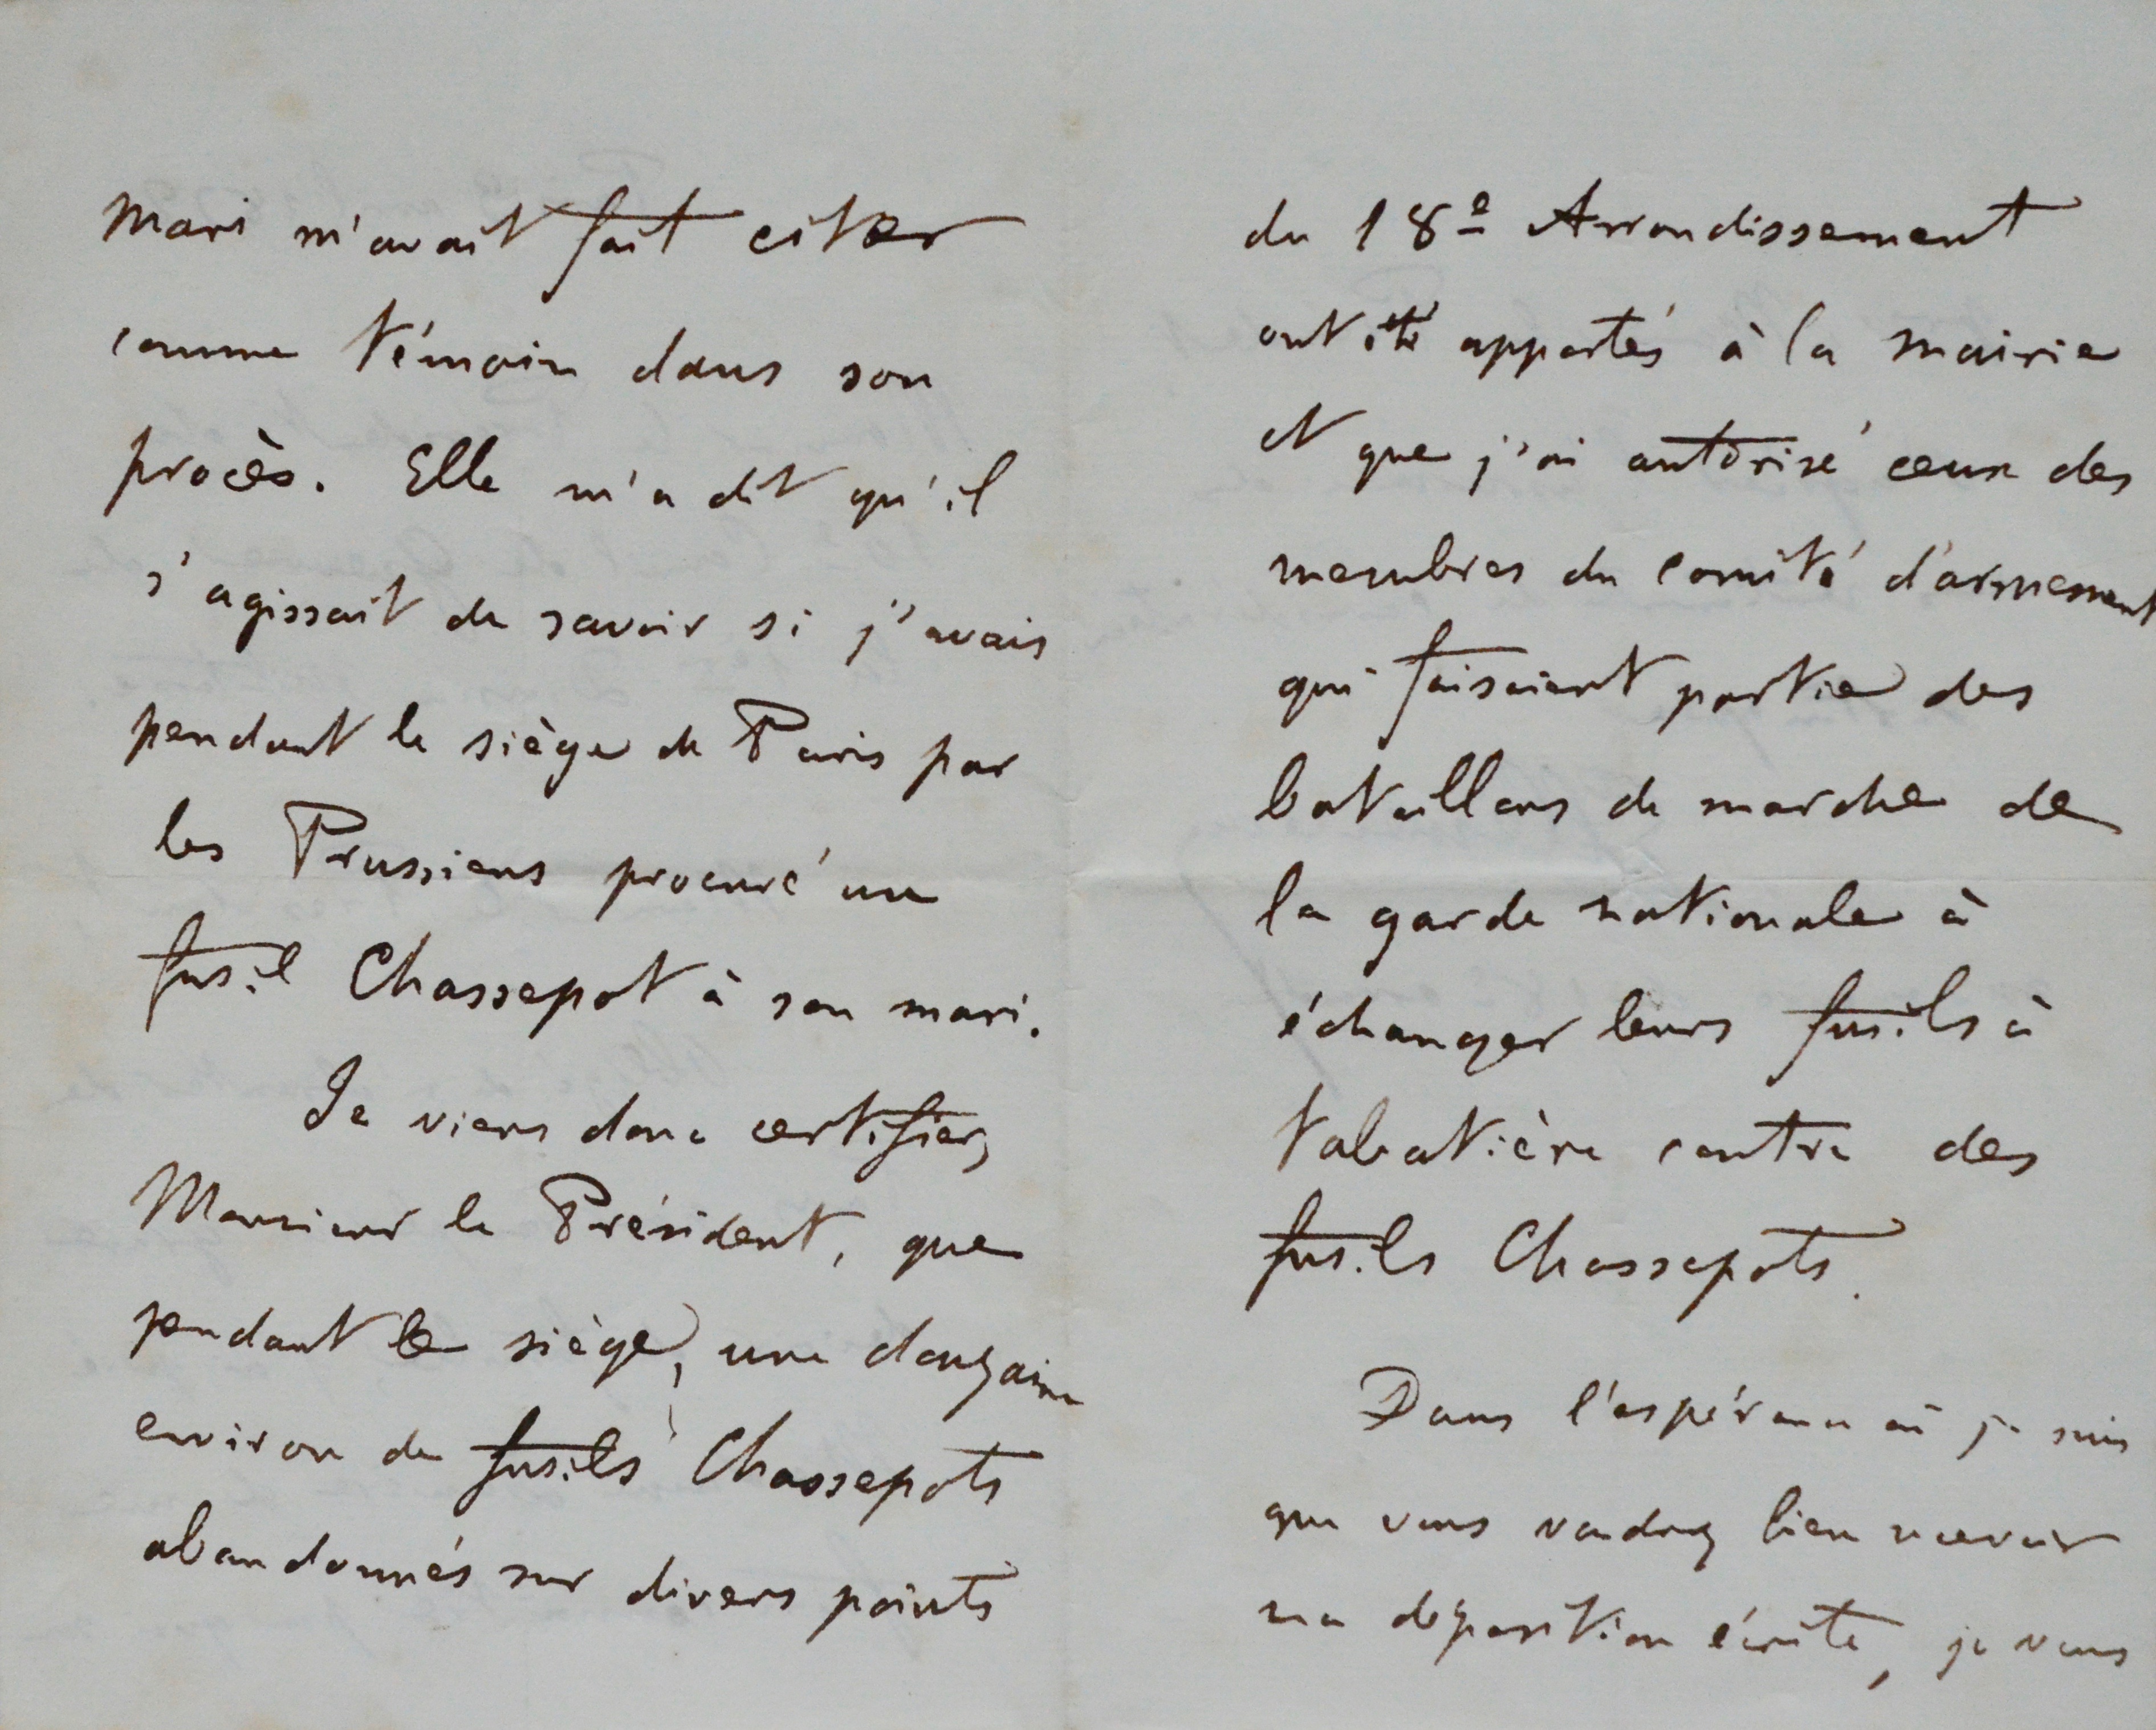 mari m'avait fait citer
comme témoin dans son
procès. Elle m'a dit qu'il
s'agissait de savoir si j'avais
pendant le siège de Paris par
les Prussiens procuré un
fusil Chassepot à son mari.
Je viens donc certifier,
Monsieur le Président, que
pendant le siège, une douzaine
environ de fusils Chassepots
abandonnés sur divers points
du 18e Arrondissement
ont été apportés à la mairie
et que j'ai autorisé ceux des
membres du comité d'armement
qui faisaient partie des
bataillons de marche de
la garde nationale à
échanger leurs fusils à
tabatière contre des
fusils Chassepots.
Dans l'espérance où je suis
que vous voudrez bien recevoir
ma déposition écrite, je vous